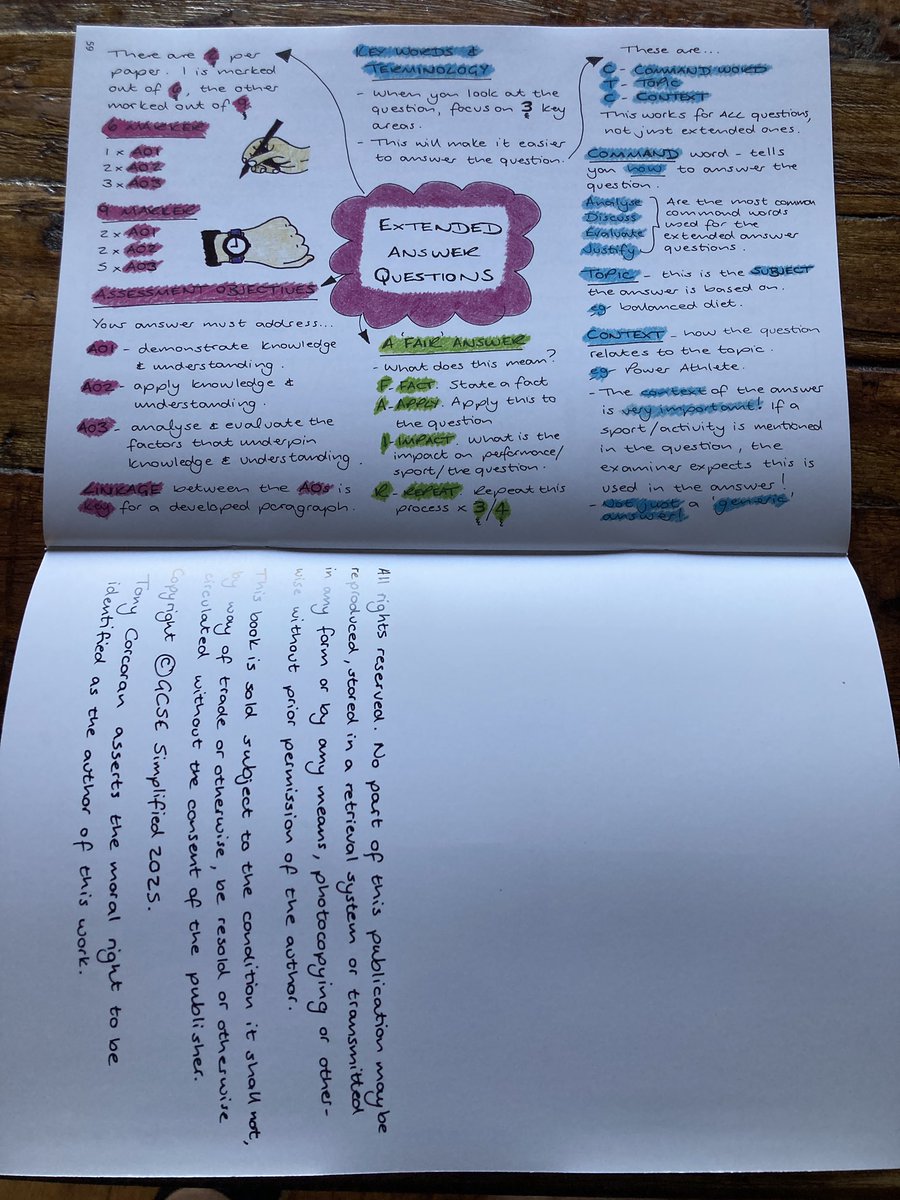 59
There are 2 per
paper. 1 is marked
out of 6, the other
marked out of 9.
6 MARKER
1 x AO1
2 x AO2
3 x AO3
9 MARKER
2 x AO1
2 x AO2
5 x AO3
ASSESSMENT OBJECTIVES
Your answer must address...
AO1 - demonstrate knowledge
& understanding.
AO2 - apply knowledge &
understanding.
AO3 - analyse & evaluate the
factors that underpin
knowledge & understanding.
LINKAGE between the AOs is
key for a developed paragraph.
KEY WORDS &
TERMINOLOGY
- When you look at the
question, focus on 3 key
areas.
- This will make it easier
to answer the question.
EXTENDED
ANSWER
QUESTIONS
A 'FAIR' ANSWER
- What does this mean?
F - FACT. State a fact
A - APPLY. Apply this to
the question
I - IMPACT. What is the
impact on performance/
sport/the question.
R - REPEAT. Repeat this
process x 3/4
These are...
C - COMMAND WORD
T - TOPIC
C - CONTEXT
This works for ALL questions,
not just extended ones.
COMMAND word - tells
you how to answer the
question.
Analyse
Discuss
Evaluate
Justify
Are the most common
command words
used for the
extended answer
questions.
TOPIC - this is the SUBJECT
the answer is based on.
eg balanced diet.
CONTEXT - how the question
relates to the topic.
eg Power Athlete.
- The context of the answer
is very important! If a
sport/activity is mentioned
in the question, the
examiner expects this is
used in the answer!
- Not just a 'generic'
answer!
All rights reserved. No part of this publication maybe
reproduced, stored in a retrieval system or transmitted
in any form or by any means, photocopying or other-
wise without prior permission of the author.
This book is sold subject to the condition it shall not,
by way of trade or otherwise, be resold or otherwise
circulated without the consent of the publisher.
Copyright © GCSE Simplified 2025.
Tony Corcoran asserts the moral right to be
identified as the author of this work.